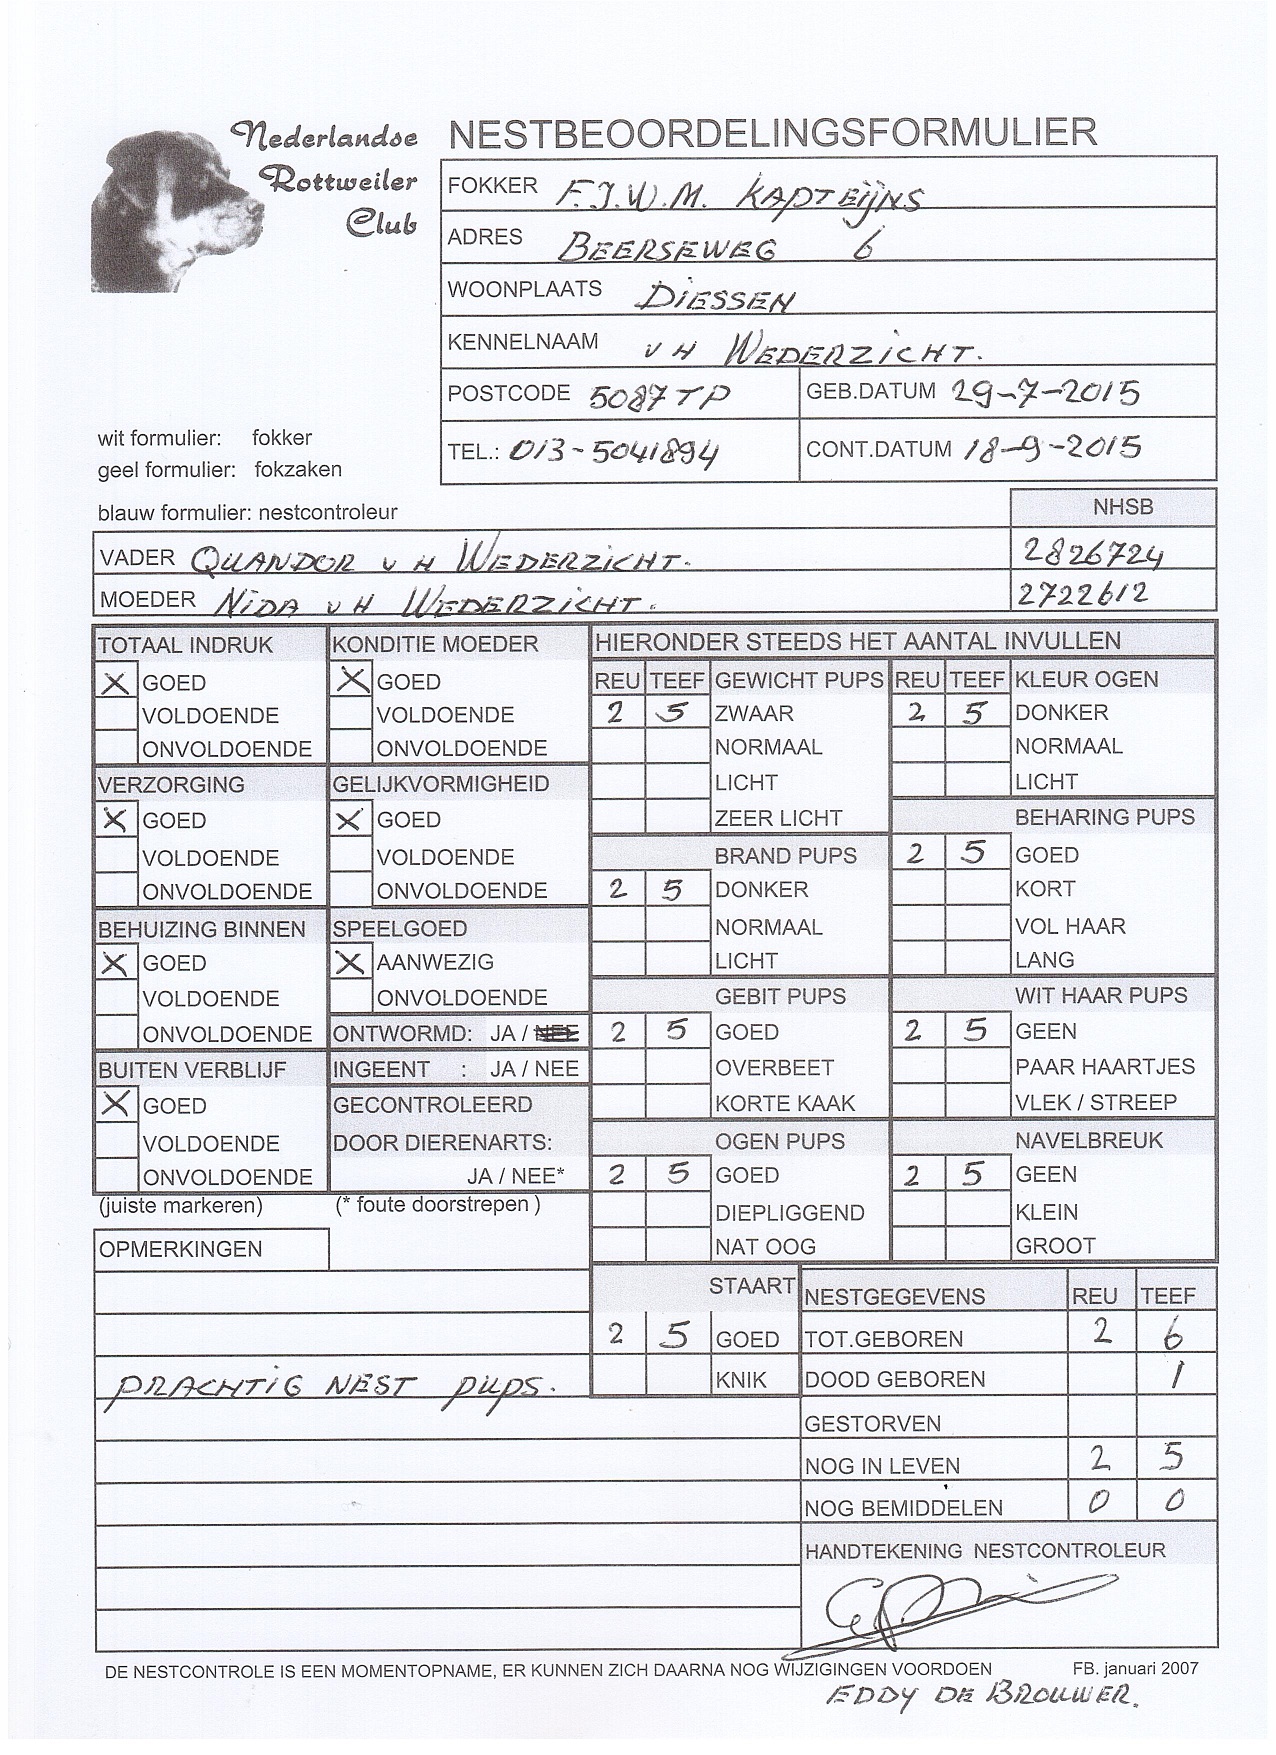 Nederlandse
Rottweiler
Club
NESTBEOORDELINGSFORMULIER
FOKKER F.J.W.M. KAPTEIJNS
ADRES BEERSEWEG 6
WOONPLAATS DIESSEN
KENNELNAAM V H WEDERZICHT.
POSTCODE 5087 TP GEB.DATUM 29-7-2015
TEL.: 013-5041894 CONT.DATUM 18-9-2015
wit formulier: fokker
geel formulier: fokzaken
blauw formulier: nestcontroleur
NHSB
VADER QUANDOR V H WEDERZICHT. 2826724
MOEDER NIDA V H WEDERZICHT. 2722612
TOTAAL INDRUK
X GOED
VOLDOENDE
ONVOLDOENDE
VERZORGING
X GOED
VOLDOENDE
ONVOLDOENDE
BEHUIZING BINNEN
X GOED
VOLDOENDE
ONVOLDOENDE
BUITEN VERBLIJF
X GOED
VOLDOENDE
ONVOLDOENDE
(juiste markeren)
KONDITIE MOEDER
X GOED
VOLDOENDE
ONVOLDOENDE
GELIJKVORMIGHEID
X GOED
VOLDOENDE
ONVOLDOENDE
SPEELGOED
X AANWEZIG
ONVOLDOENDE
ONTWORMD: JA / NEE
INGEENT : JA / NEE
GECONTROLEERD
DOOR DIERENARTS:
JA / NEE*
(* foute doorstrepen )
HIERONDER STEEDS HET AANTAL INVULLEN
REU TEEF GEWICHT PUPS
2 5 ZWAAR
NORMAAL
LICHT
ZEER LICHT
BRAND PUPS
2 5 DONKER
NORMAAL
LICHT
GEBIT PUPS
2 5 GOED
OVERBEET
KORTE KAAK
OGEN PUPS
2 5 GOED
DIEPLIGGEND
NAT OOG
STAART
2 5 GOED
KNIK
REU TEEF KLEUR OGEN
2 5 DONKER
NORMAAL
LICHT
BEHARING PUPS
2 5 GOED
KORT
VOL HAAR
LANG
WIT HAAR PUPS
2 5 GEEN
PAAR HAARTJES
VLEK / STREEP
NAVELBREUK
2 5 GEEN
KLEIN
GROOT
OPMERKINGEN
PRACHTIG NEST PUPS.
NESTGEGEVENS REU TEEF
TOT.GEBOREN 2 6
DOOD GEBOREN 1
GESTORVEN
NOG IN LEVEN 2 5
NOG BEMIDDELEN 0 0
HANDTEKENING NESTCONTROLEUR
DE NESTCONTROLE IS EEN MOMENTOPNAME, ER KUNNEN ZICH DAARNA NOG WIJZIGINGEN VOORDOEN FB. januari 2007
EDDY DE BROUWER.